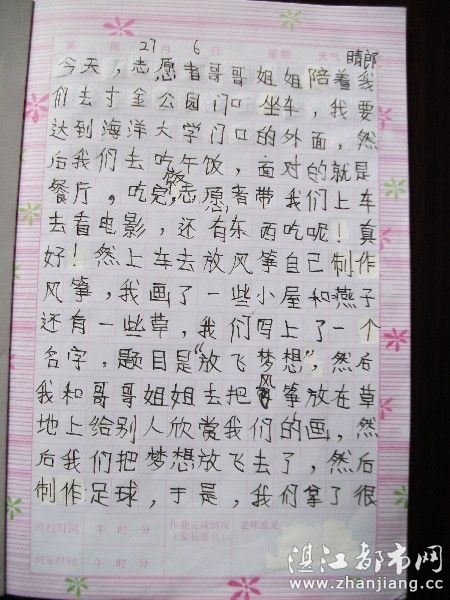 第 周 27 月 6 日 星期 天气 晴郎
今天，志愿者哥哥姐姐陪着我
们去寸金公园门口坐车，我要
达到海洋大学门口的外面，然
后我们去吃午饭，面对的就是
餐厅。吃完饭，志愿者带我们上车
去看电影，还有东西吃呢！真
好！然上车去放风筝自己制作
风筝，我画了一些小屋和燕子
还有一些草，我们写上了一个
名字，题目是“放飞梦想”，然后
我和哥哥姐姐去把风筝放在草
地上给别人欣赏我们的画，然
后我们把梦想放飞去了，然后
制作足球，于是，我们拿了很
离校时间 午 时 分 作业完成情况 老师意见
（家长签名）
到家时间 午 时 分
湛江都市网
www.zhanjiang.cc